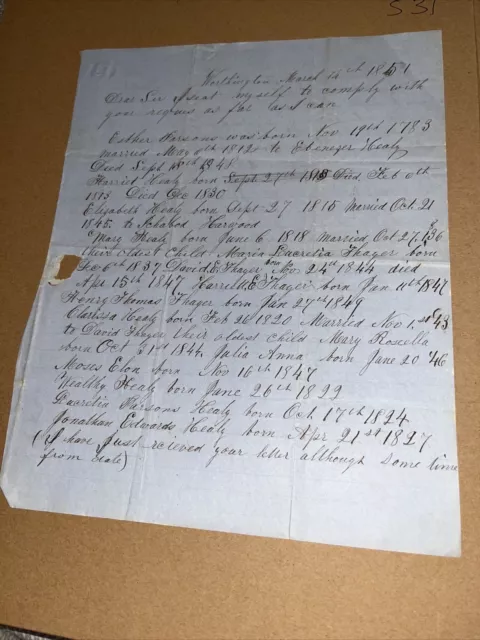 S 31
Worthington March 14th 1851
Dear Sir I seat myself to comply with
your request as far as I can
Esther Parsons was born Nov 19th 1783
married May 6th 1812 to Ebenezer Healy
Died Sept 18th 1848
Harriet Healy born Sept 27th 1813 Died Feb 6th
1813 Died Dec 1830
Elizabeth Healy born Sept 27 1815 Married Oct 21
1845 to Ichabod Harwood
Mary Healy born June 6 1818 married Oct 27 1836
their oldest child Maria Lucretia Thayer born
Dec 6th 1837 David E Thayer born Nov 24th 1844 died
Apr 15th 1847 Harriett E Thayer born Jan 11th 1847
Henry Thomas Thayer born Jan 27th 1849
Clarissa Healy born Feb 26 1820 Married Nov 1st 43
to David Thayer their oldest child Mary Rosella
born Oct 31st 1844 Julia Anna born June 20 46
Moses Elon born Nov 16th 1847
Wealthy Healy born June 26th 1822
Lucretia Parsons Healy born Oct 17th 1824
Jonathan Edwards Healy born Apr 21st 1827
(I have just recieved your letter although some time
from date)